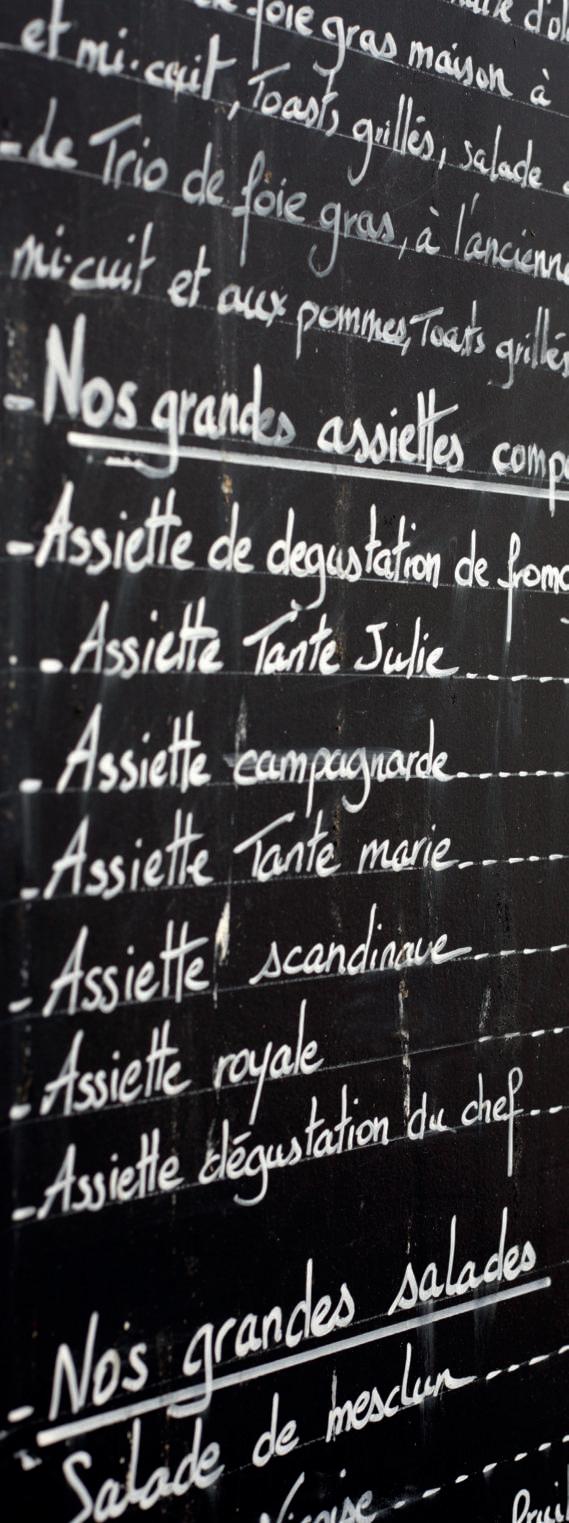 foie gras maison à
et mi-cuit, Toasts grillés, salade
- de Trio de foie gras, à l'ancienne
mi-cuit et aux pommes, Toasts grillés
- Nos grandes assiettes comp
- Assiette de degustation de froma
- Assiette Tante Julie
- Assiette campagnarde
- Assiette Tante marie
- Assiette scandinave
- Assiette royale
- Assiette dégustation du chef
- Nos grandes salades
- Salade de mesclun
Niçoise